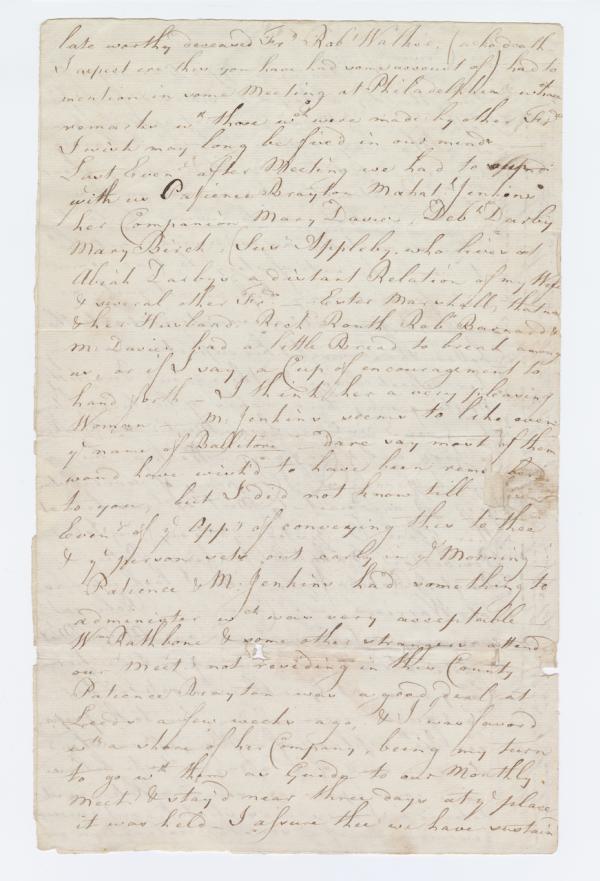 late worthy deceased Frd Robt Walker, (who death
I expect ere this you have had some account of) had to
mention in some Meeting at Philadelphia, wch
remarks wth those wch were made by other Frds
I wish may long be fixed in our minds
Last Eveng after Meeting we had to
with us Patience Brayton Mahetl Jenkins
her Companion Mary Davis, Debh Darby
Mary Birch, Sus Appleby, who lives at
Abiah Darbys a distant Relation of my Wife
& several other Frds — Ester Marshall, that was
& her Husband, Richd Routh Robt Barnard &
M: Davies had a little Bread to break among
us, or if I say, a Cup of encouragement to
hand forth — I think her a very pleasing
Woman — M: Jenkins seems to like even
ye name of Ballitore — Dare say most of them
woud have wish'd to have been rememberd
to you, but I did not know till
Eveng of ye Oppy of conveying this to thee
& ye person sets out early in ye Morning
Patience & M: Jenkins had something to
administer wch was very acceptable
Wm Rathbone & some other strangers attend
our Meetg not residing in this County
Patience Brayton was a good deal at
Leeds a few weeks ago, & I was favord
wth a share of her Company, being my turn
to go wth them as Guide to our Monthly
Meetg & stay'd near three days at ye place
it was held — I assure thee we have sustain